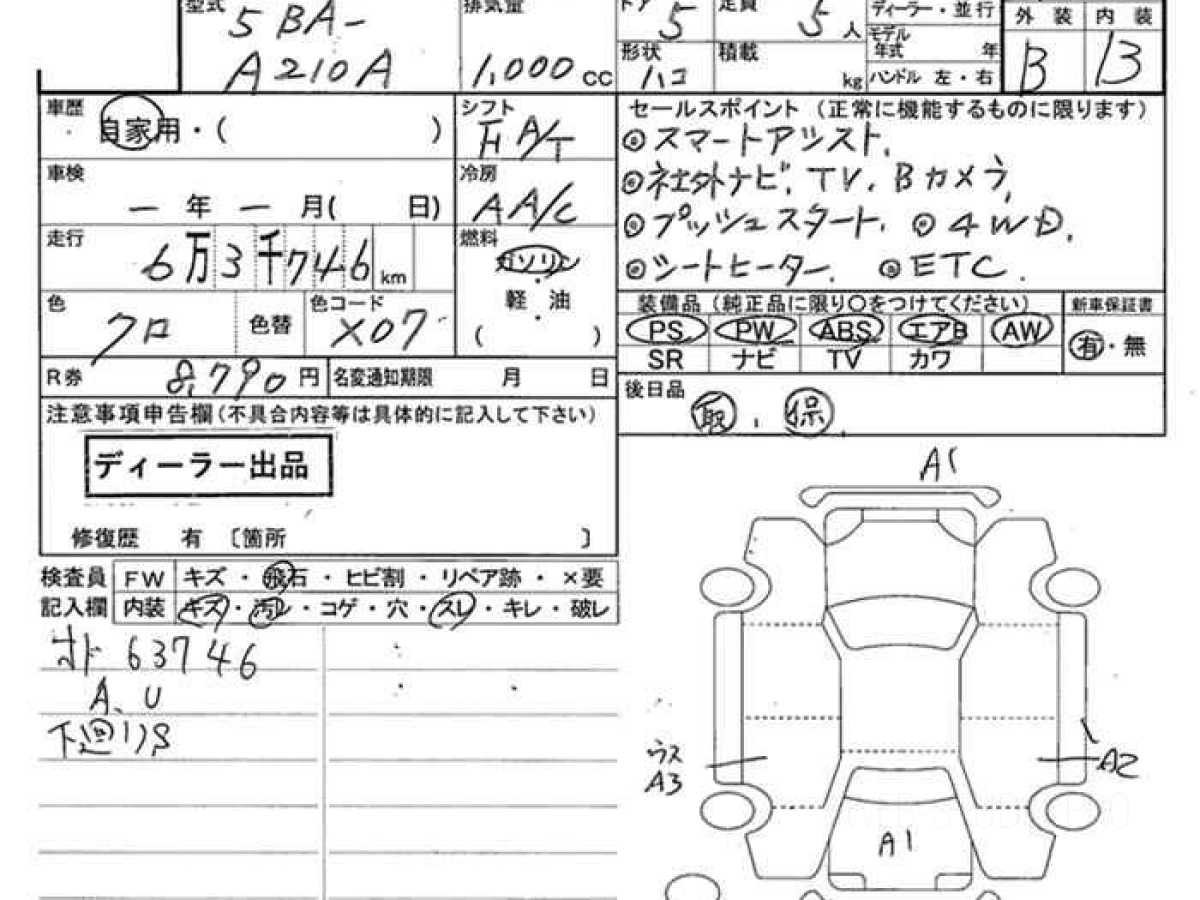 型式 排気量 ドア 定員 ディーラー・並行 外装 内装
5BA- 5 5人 モデル年式 年
A210A 1,000cc 形状 ハコ 積載 kg ハンドル 左・右 B B
車歴 自家用・( ) シフト F A/T
車検 ー年 ー月( 日) 冷房 AA/C
走行 6万3千746km 燃料 ガソリン
軽・油
( )
色 クロ 色替 色コード X07
R券 8,790円 名変通知期限 月 日
注意事項申告欄(不具合内容等は具体的に記入して下さい)
ディーラー出品
修復歴 有 〔箇所 〕
セールスポイント (正常に機能するものに限ります)
◎スマートアシスト.
◎社外ナビ. TV. Bカメラ,
◎プッシュスタート. ◎4WD.
◎シートヒーター. ◎ETC.
装備品 (純正品に限り○をつけてください) 新車保証書
PS PW ABS エアB AW 有・無
SR ナビ TV カワ
後日品
取. 保
検査員 FW キズ・飛石・ヒビ割・リペア跡・×要
記入欄 内装 キズ・汚レ・コゲ・穴・スレ・キレ・破レ
オド 63746
A、U
下廻りS
A1
ウス
A3
A2
A1